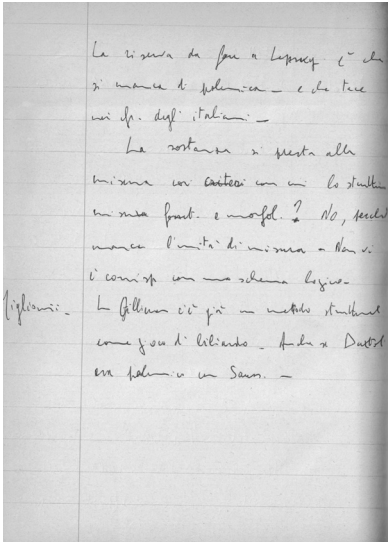 La riserva da fare a Lepscky è che
si manca di polemica – e che tace
nei degli italiani –
La sostanza si presta alla
misura coi criteri con cui lo
misura e morfol.? No, perché
manca l'unità di misura e Non vi
è corrisp con uno schema logico –
Migliorini –
In Gilliéron c'è già un metodo
come gioco di biliardo – Anche se
era polemico con Sauss. –